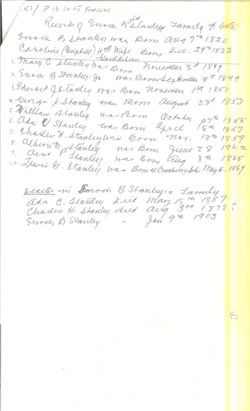 Record of Enoch B Stanley Family
Enoch B Stanley was Born Aug 7th 1820
Caroline 4th Wife Born Dec. 29th 1822
1. Mary C Stanley was Born November 3rd 1849
2. Enoch B Stanley Jr was Born 4th 1849
3. Stanley was Born November 1st 1851
4. George S Stanley was Born August 23 1853
5. William Stanley was Born October 27th 1855
6. Ada C Stanley was Born April 18th 1857
7. Charles H Stanley was Born Nov. 18th 1859
8. Stanley was Born June 28 1862
9. Stanley was Born Aug 8th 1865
10. Lewis G Stanley was Born May 6, 1869
Deaths in Enoch B Stanley's Family
Ada C. Stanley Died May 18th 1857
Charles H Stanley died Aug 3rd 1878
Enoch B Stanley " Jan 9th 1903
15